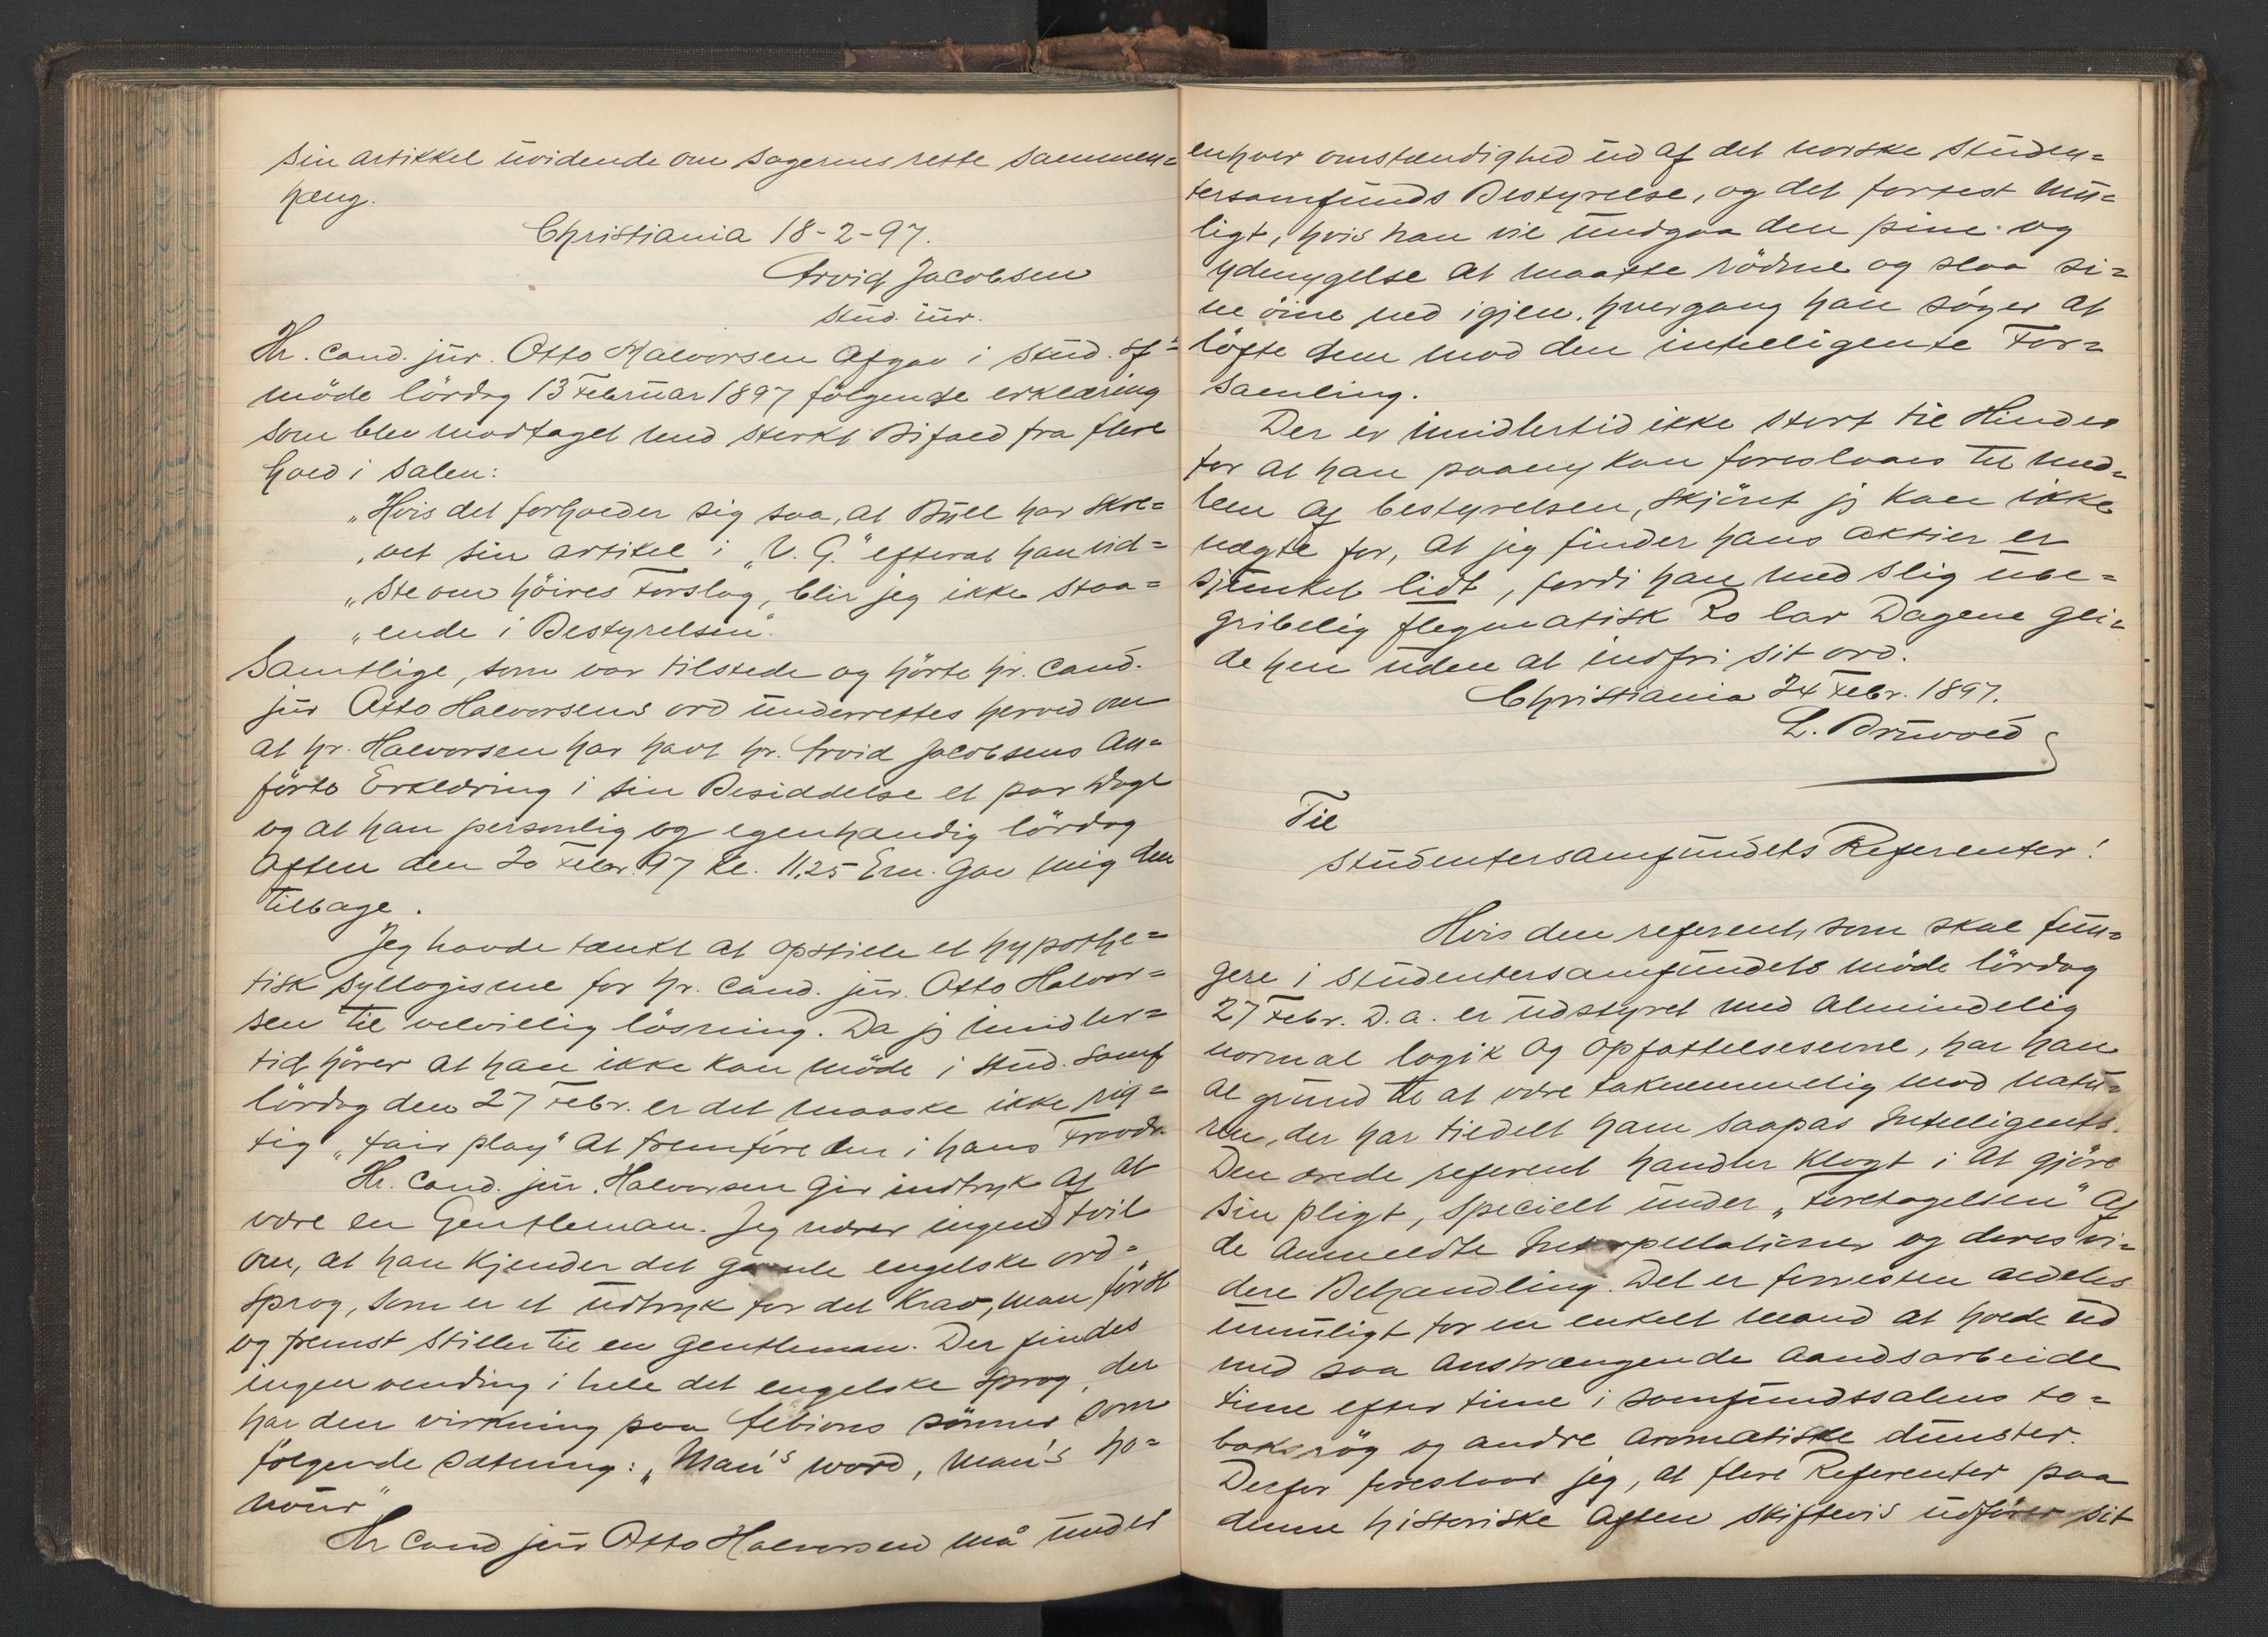 sin artikkel uvidende om sagernes rette sammen=
hæng.
Christiania 18-2-97.
Arvid Jacobsen
stud. iur.
Hr. cand. jur. Otto Halvorsen afgav i stud. sf's
møde lørdag 13 Februar 1897 følgende erklæring
som blev modtaget med sterkt Bifald fra flere
hold i salen:
"Hvis det forholder sig saa, at Bull har skre=
"vet sin artikel i "V. G." efterat han vid=
"ste om höires Forslag, blir jeg ikke staa=
"ende i Bestyrelsen".
Samtlige, som var tilstede og hörte hr. cand.
jur Otto Halvorsens ord underrettes herved om
at hr. Halvorsen har havt hr. Arvid Jacobsens an=
förte Erklæring i sin Besiddelse et par Dage
og at han personlig og egenhændig lördag
Aften den 20 Febr. 97 kl. 11,25 Em. gav mig den
tilbage.
Jeg havde tænkt at opstille et hypothe=
tisk syllogisme for hr. cand. jur. Otto Halvor=
sen til velvillig lösning. Da jg imidler=
tid hörer at han ikke kan möde i Stud. samf
lördag den 27 Febr. er det maaske ikke rig=
tig "fair play" at fremföre den i hans Fravær.
Hr. cand. jur. Halvorsen gir indtryk af at
være en Gentleman. Jeg nærer ingen tvil
om, at han kjender det gamle engelske ord=
sprog, som er et udtryk for det Krav, man först
og fremst stiller til en gentleman. Der findes
ingen vending i hele det engelske sprog, der
har den virkning paa Albions sönner som
fölgende sætning: "Man's word, man's ho=
nour"
Hr cand jur Otto Halvorsen må under
enhver omstændighed ud af det norske studen=
tersamfunds Bestyrelse, og det fortest mu=
ligt, hvis han vil undgaa den pine og
ydmygelse at maatte rödme og slaa si=
ne öine ned igjen, hvergang han söger at
löfte dem mod den intelligente For=
samling.
Der er imidlertid ikke stort til Hinder
for at han paany kan foreslaaes til med=
lem af bestyrelsen, skjönt jg kan ikke
nægte for, at jeg finder hans aktier er
sjunket lidt, fordi han med slig ube=
gribelig flegmatisk Ro lar Dagene gli=
de hen uden at indfri sit ord.
Christiania 24 Febr. 1897.
L. Bruvold
Til
Studentersamfundets Referenter!
Hvis den referent som skal fun=
gere i studentersamfundets möde lördag
27 Febr. D. a. er udstyret med almindelig
normal logik og opfattelsesevne, har han
al grund til at være taknemmelig mod natu=
ren, der har tildelt ham saapas Intelligents.
Den ærede referent handler klogt i at gjöre
sin pligt, specielt under "Foretagelsen" af
de anmeldte Interpellationer og deres vi=
dere Behandling. Det er forresten aldeles
umuligt for en enkelt mand at holde ud
med saa anstrængende aandsarbeide
time efter time i samfundssalens to=
baksrög og andre aromatiske dunster.
Derfor foreslaar jeg, at flere Referenter paa
denne historiske Aften skiftevis udförer sit